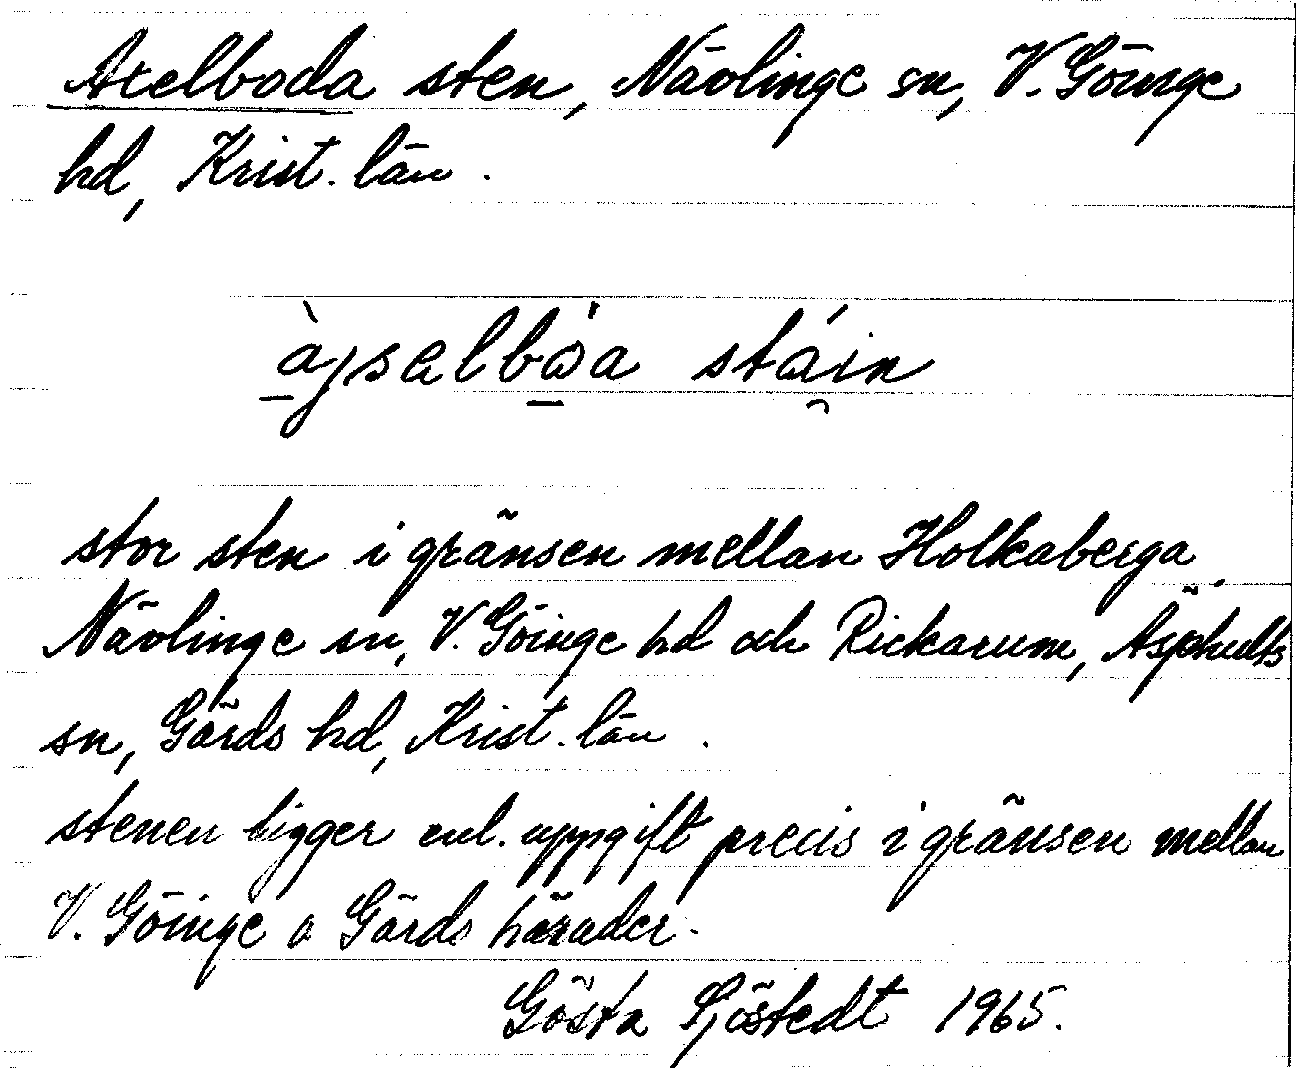 Axelboda sten, Nävlinge sn, V. Göinge
hd, Krist. län.
àjsəlbòa stáin
stor sten i gränsen mellan Holkaberga,
Nävlinge sn, V. Göinge hd och Rickarum, Äsphults
sn, Gärds hd, Krist. län.
stenen ligger enl. uppgift precis i gränsen mellan
V. Göinge o Gärds härader.
Gösta Sjöstedt 1965.